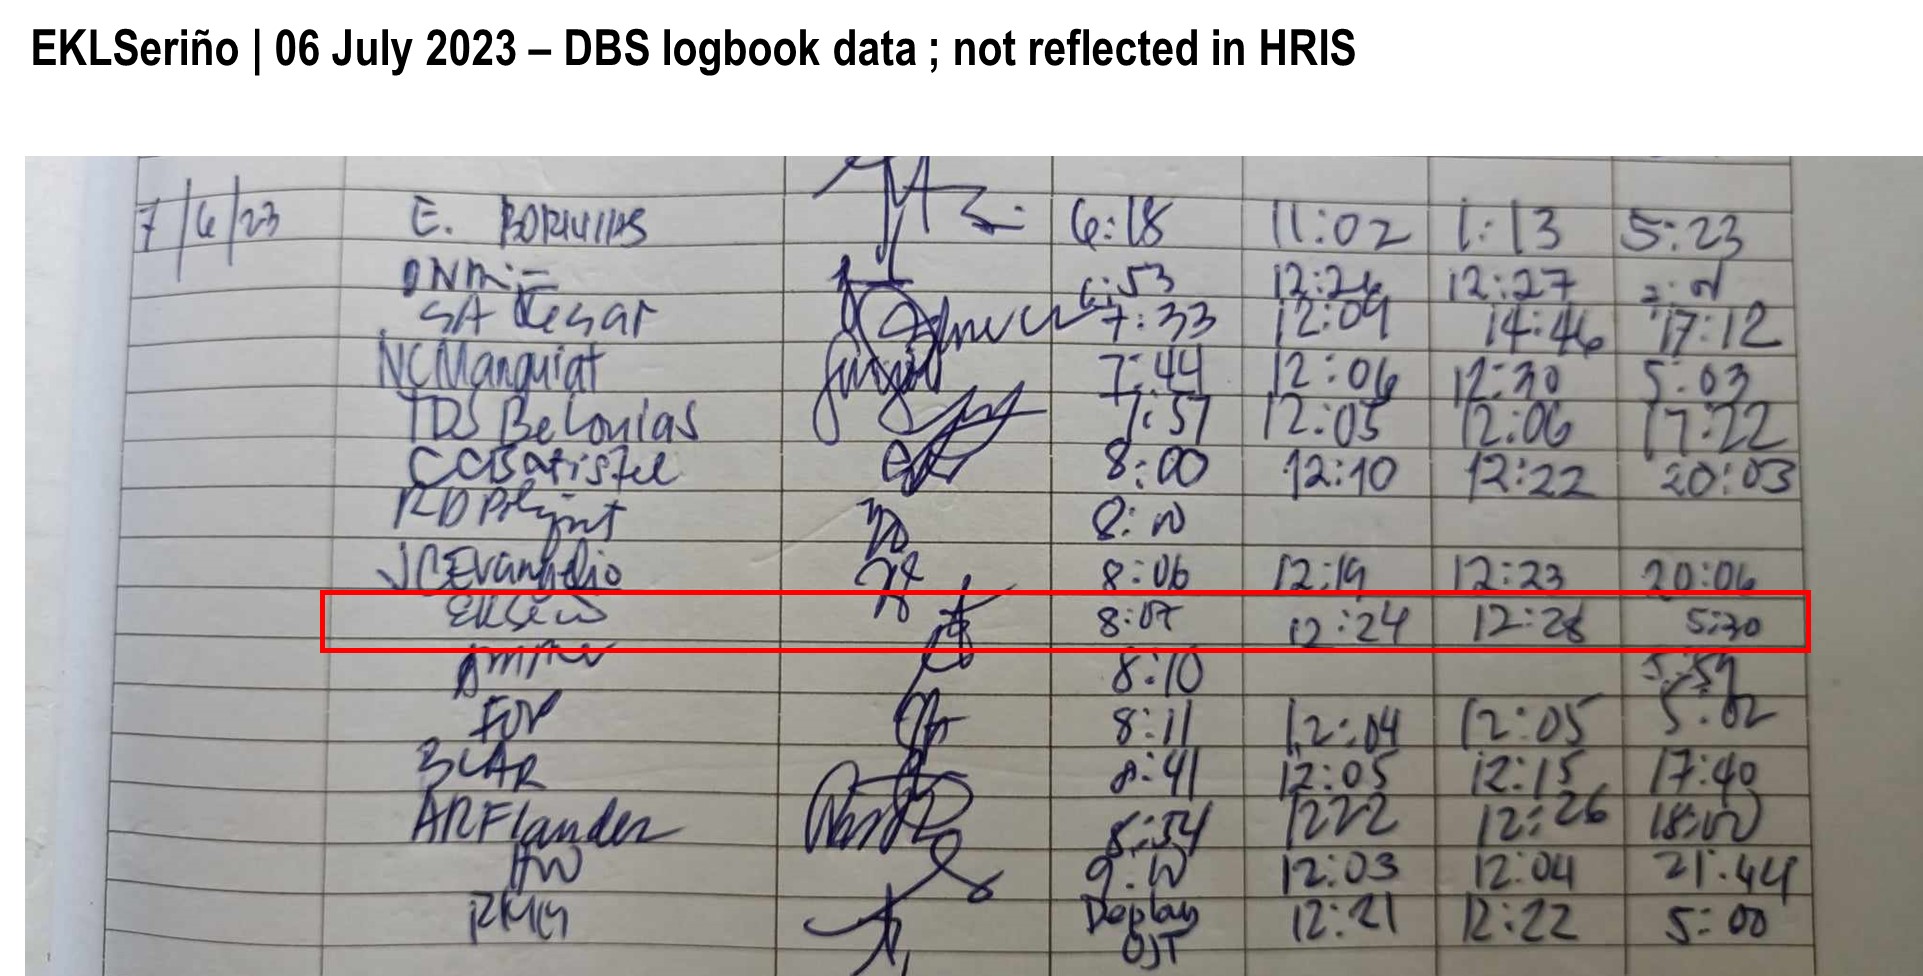 EKLSeriño | 06 July 2023 – DBS logbook data ; not reflected in HRIS
7/6/23 E. 6:18 11:02 1:13 5:23
6:53 12:26 12:27
SA Cesar 7:33 12:09 14:46 17:12
NCManguiat 7:44 12:06 12:30 5:03
TDS Belonias 7:57 12:05 12:06 17:22
CCBatistil 8:00 12:10 12:22 20:03
8:00
JCEvangelio 8:06 12:19 12:23 20:06
8:07 12:24 12:28 5:30
8:10 5:59
FOP 8:11 12:04 12:05 5:02
BLAR 8:41 12:05 12:15 17:40
ARFlander 8:54 1222 12:26 18:00
9:00 12:03 12:04 21:44
Deploy 12:21 12:22 5:00
OJT